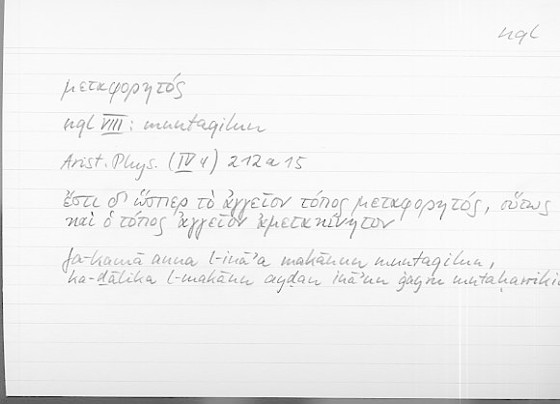 nql
μεταφορητός
nql VIII: muntaqilun
Arist. Phys. (IV 4) 212a15
ἔστι δ' ὥσπερ τὸ ἀγγεῖον τόπος μεταφορητός, οὕτως
καὶ ὁ τόπος ἀγγεῖον ἀμετακίνητον
fa-kamā anna l-ināʾa makānun muntaqilun,
ka-ḏālika l-makānu ayḍan ināʾun ġayru mutaḥarriki